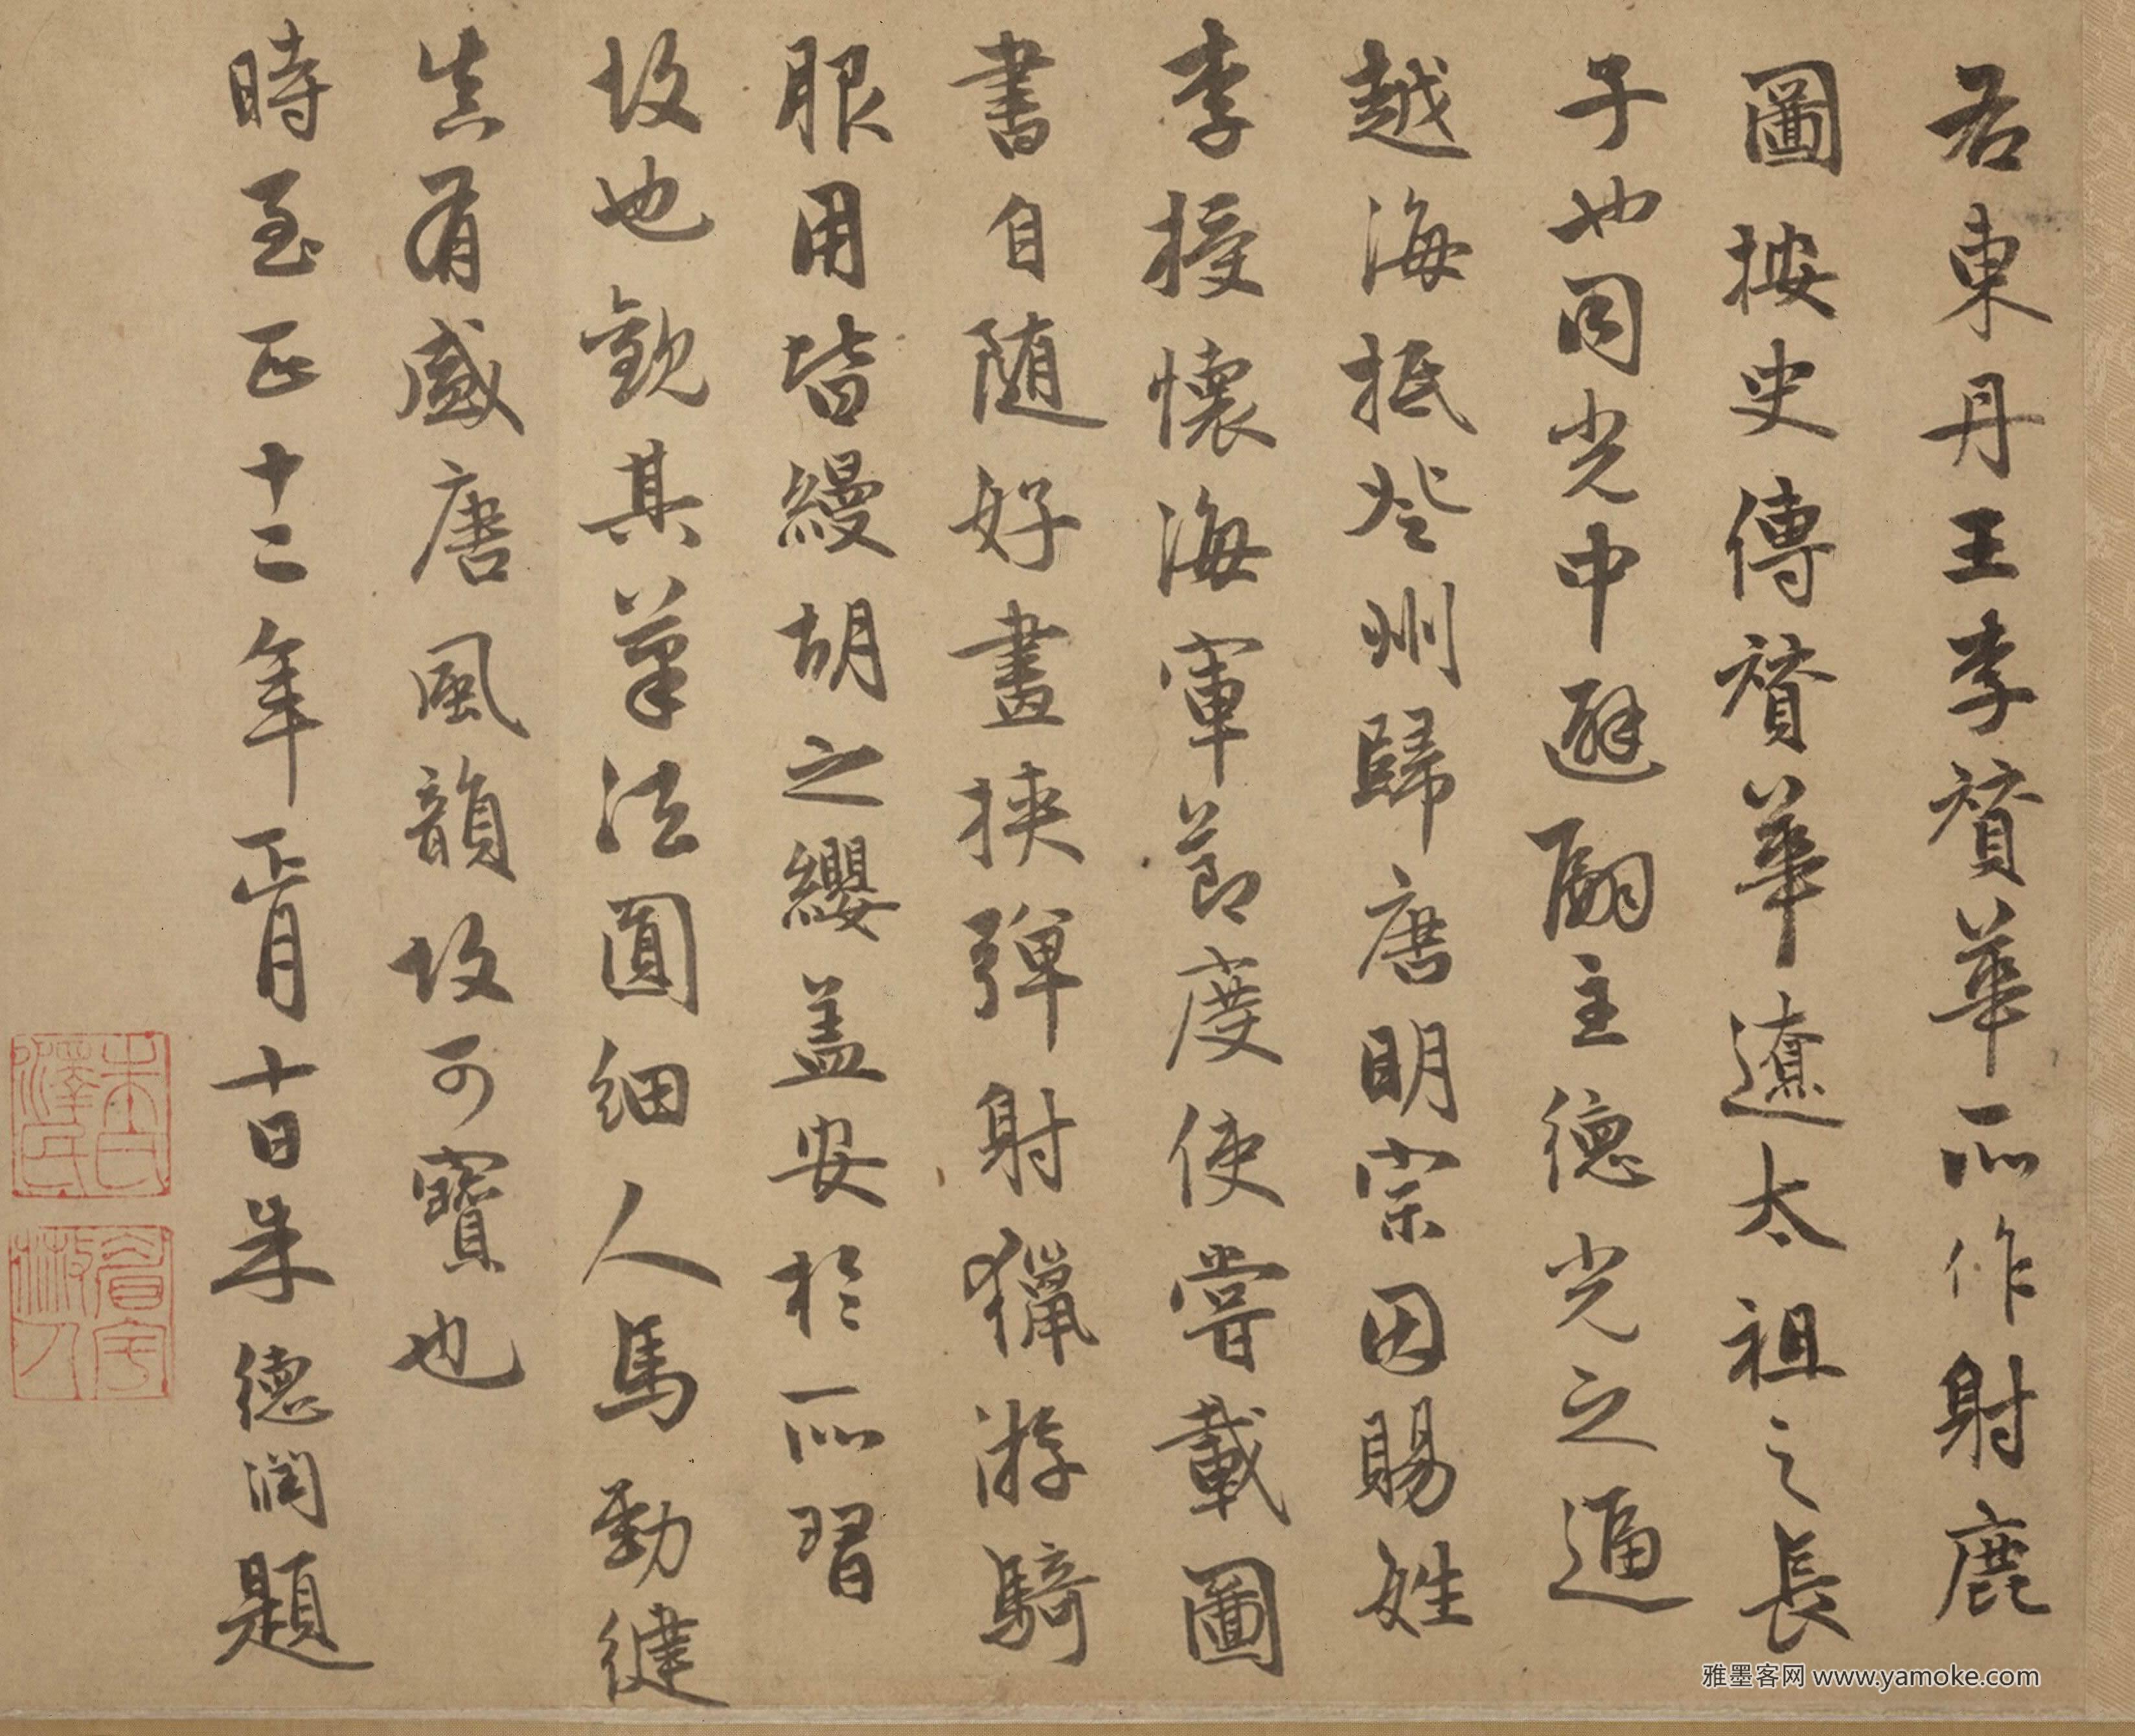 右東丹王李贊華所作射鹿
圖按史傳贊華遼太祖之長
子也同光中避嗣主德光之逼
越海抵登州歸唐明宗因賜姓
李授懷海軍節度使嘗載圖
書自随好畫挾彈射獵游騎
服用皆縵胡之纓盖安於所習
故也觀其筆法圓細人馬勁健
真有盛唐風韻故可寶也
時至正十二年正月十日朱德潤題
朱氏澤民
眉宇散人
雅墨客网 www.yamoke.com